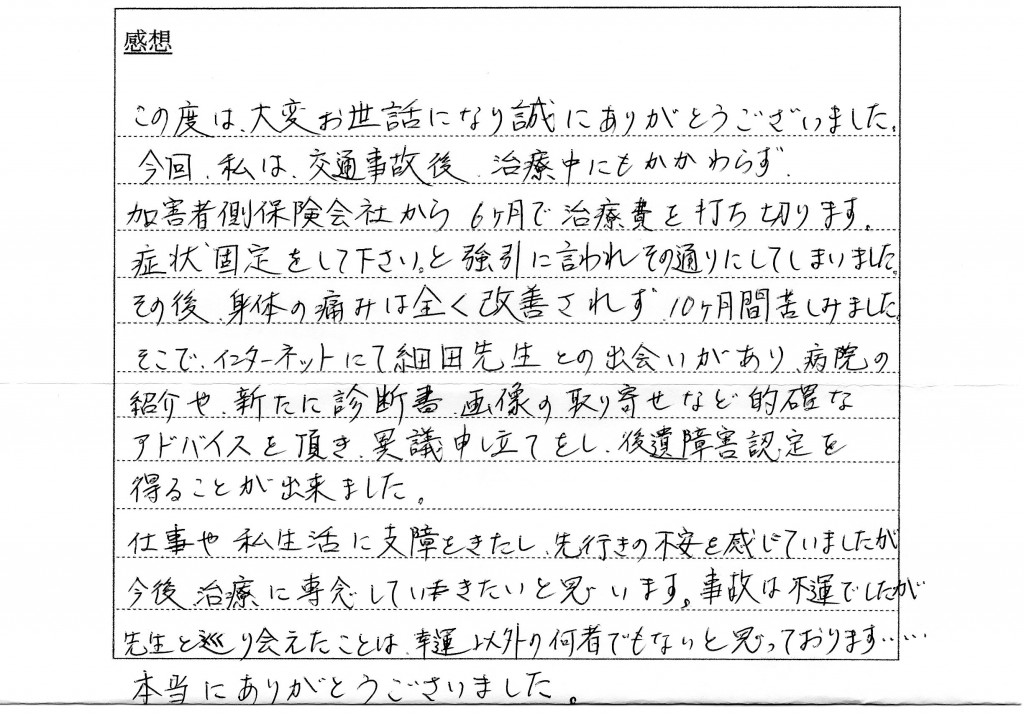 感想
この度は、大変お世話になり誠にありがとうございました。
今回、私は、交通事故後、治療中にもかかわらず、
加害者側保険会社から6ヶ月で治療費を打ち切ります。
症状固定をして下さい。と強引に言われその通りにしてしまいました。
その後、身体の痛みは全く改善されず、10ヶ月間苦しみました。
そこで、インターネットにて細田先生との出会いがあり、病院の
紹介や、新たに診断書、画像の取り寄せなど的確な
アドバイスを頂き、異議申し立てをし、後遺障害認定を
得ることが出来ました。
仕事や私生活に支障をきたし、先行きの不安を感じていましたが
今後、治療に専念していきたいと思います。事故は不運でしたが
先生と巡り会えたことは、幸運以外の何者でもないと思っております……
本当にありがとうございました。